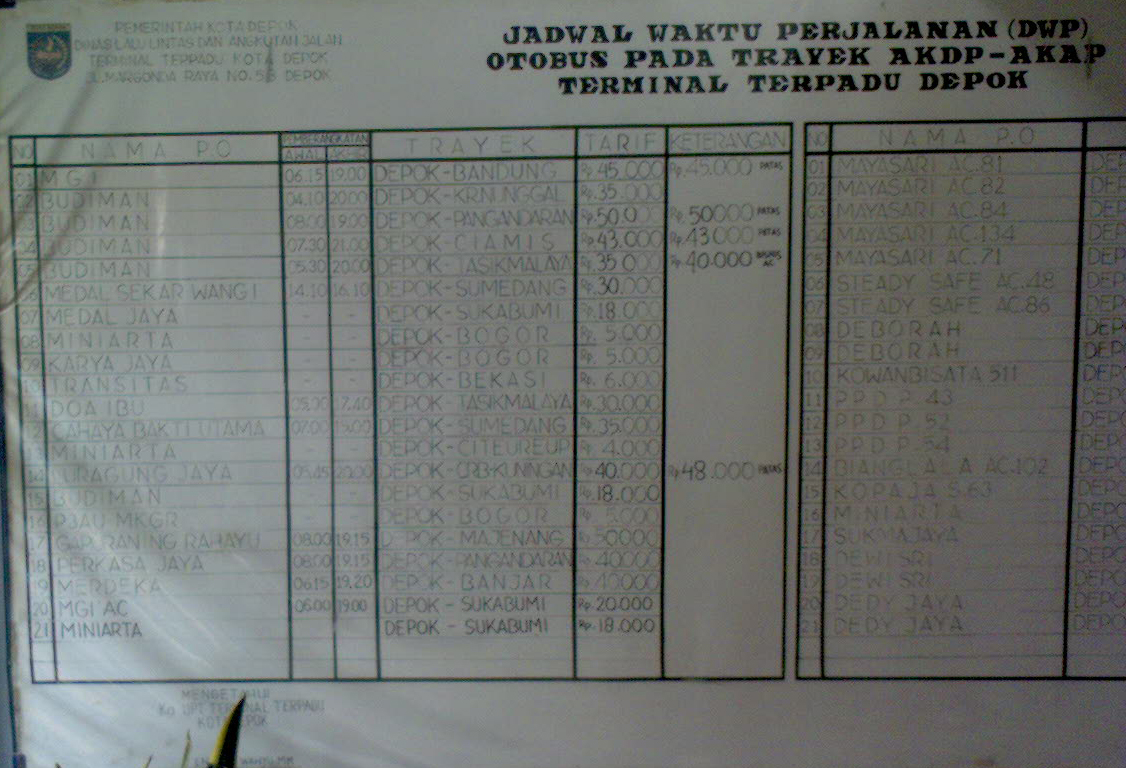 PEMERINTAH KOTA DEPOK
DINAS LALU LINTAS DAN ANGKUTAN JALAN
TERMINAL TERPADU KOTA DEPOK
JL.MARGONDA RAYA NO. 58 DEPOK
JADWAL WAKTU PERJALANAN (DWP)
OTOBUS PADA TRAYEK AKDP-AKAP
TERMINAL TERPADU DEPOK
NO NAMA P.O PEMBERANGKATAN AWAL AKHIR TRAYEK TARIF KETERANGAN
01 MGI 06.15 19.00 DEPOK-BANDUNG Rp.45.000 Rp.45.000 PATAS
02 BUDIMAN 04.10 20.00 DEPOK-KRNUNGGAL Rp.35.000
BUDIMAN 08.00 19.00 DEPOK-PANGANDARAN Rp.50.0 Rp.50000 PATAS
04 BUDIMAN 07.30 21.00 DEPOK-CIAMIS Rp.43.000 Rp.43000 PATAS
05 BUDIMAN 05.30 20.00 DEPOK-TASIKMALAYA Rp.35.000 Rp.40.000 AC
06 MEDAL SEKAR WANGI 14.10 16.10 DEPOK-SUMEDANG Rp.30.000
07 MEDAL JAYA - - DEPOK-SUKABUMI Rp.18.000
08 MINIARTA - - DEPOK-BOGOR Rp. 5.000
09 KARYA JAYA - - DEPOK-BOGOR Rp. 5.000
10 TRANSITAS - - DEPOK-BEKASI Rp. 6.000
11 DOA IBU 05.00 17.40 DEPOK-TASIKMALAYA Rp.30.000
12 CAHAYA BAKTI UTAMA 07.00 15.00 DEPOK-SUMEDANG Rp.35.000
13 MINIARTA - - DEPOK-CITEUREUP Rp. 4.000
14 LURAGUNG JAYA 05.45 20.00 DEPOK-CRB-KUNINGAN Rp.40.000 Rp.48.000 PATAS
15 BUDIMAN - - DEPOK-SUKABUMI Rp.18.000
16 P3AU MKGR - - DEPOK-BOGOR Rp. 5.000
17 RAHAYU 08.00 19.15 DEPOK-MAJENANG Rp.50000
18 PERKASA JAYA 08.00 19.15 DEPOK-PANGANDARAN Rp.40000
19 MERDEKA 06.15 19.20 DEPOK-BANJAR Rp.40000
20 MGI AC 06.00 19.00 DEPOK - SUKABUMI Rp.20.000
21 MINIARTA DEPOK - SUKABUMI Rp.18.000
MENGETAHUI
Ka UPT TERMINAL TERPADU
KOTA DEPOK
NO NAMA P.O
01 MAYASARI AC.81 DEP
02 MAYASARI AC.82 DEP
03 MAYASARI AC.84 DEP
04 MAYASARI AC.134 DEP
05 MAYASARI AC.71 DEP
06 STEADY SAFE AC.48 DEP
07 STEADY SAFE AC.86 DEP
08 DEBORAH DEP
09 DEBORAH DEP
10 KOWANBISATA 511 DEP
11 PPD P.43 DEP
12 PPD P.52 DEP
13 PPD P.54 DEP
14 BIANGLALA AC.102 DEPO
15 KOPAJA S.63 DEPO
16 MINIARTA DEPO
17 SUKMAJAYA DEPO
18 DEWI SRI DEPO
19 DEWI SRI DEPO
20 DEDY JAYA DEPO
21 DEDY JAYA DEPO